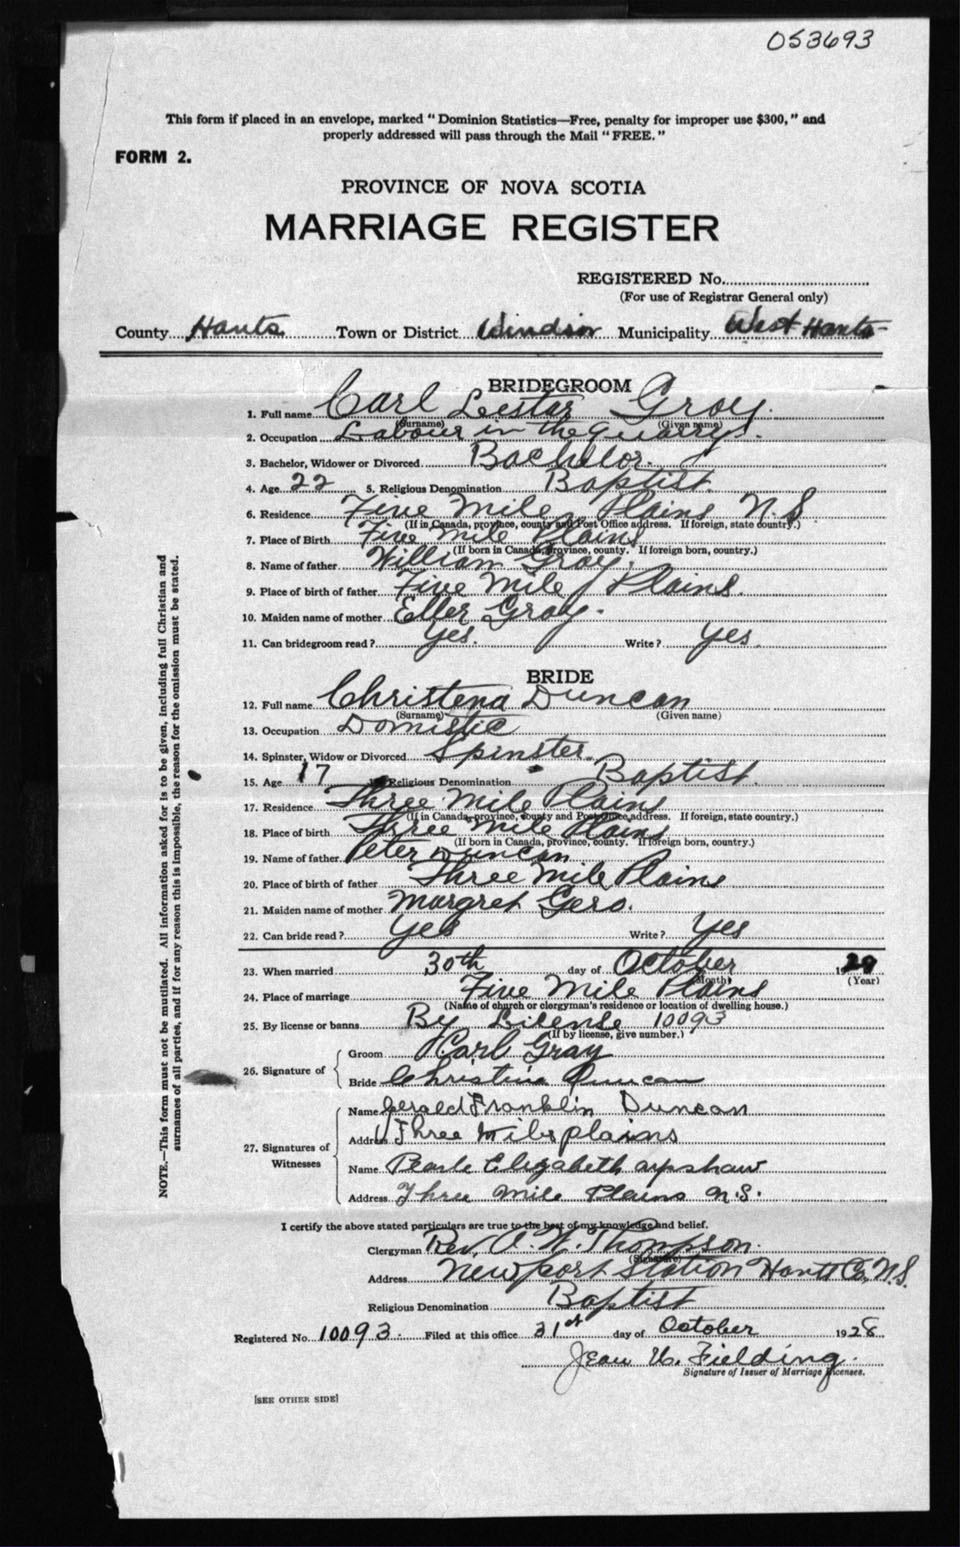 053693
This form if placed in an envelope, marked "Dominion Statistics—Free, penalty for improper use $300," and
properly addressed will pass through the Mail "FREE."
FORM 2.
PROVINCE OF NOVA SCOTIA
MARRIAGE REGISTER
REGISTERED No.
(For use of Registrar General only)
County Hants Town or District Windsor Municipality West Hants
BRIDEGROOM
1. Full name Carl Lestar Gray.
(Surname) (Given name)
2. Occupation Labour in the Quarry.
3. Bachelor, Widower or Divorced Bachelor.
4. Age 22 5. Religious Denomination Baptist
6. Residence Five Mile Plains N.S
(If in Canada, province, county and Post Office address. If foreign, state country.)
7. Place of Birth Five Mile Plains
(If born in Canada, province, county. If foreign born, country.)
8. Name of father William Gray.
9. Place of birth of father Five Mile Plains.
10. Maiden name of mother Eller Gray.
11. Can bridegroom read? Yes. Write? Yes.
BRIDE
12. Full name Christena Duncan
(Surname) (Given name)
13. Occupation Domistic
14. Spinster, Widow or Divorced Spinster.
15. Age 17 Religious Denomination Baptist.
17. Residence Three Mile Plains
(If in Canada, province, county and Post Office address. If foreign, state country.)
18. Place of birth Three Mile Plains
(If born in Canada, province, county. If foreign born, country.)
19. Name of father Peter Duncan
20. Place of birth of father Three Mile Plains
21. Maiden name of mother Margret Gero.
22. Can bride read? Yes Write? Yes
23. When married 30th day of October 1929
(Month) (Year)
24. Place of marriage Five Mile Plains
(Name of church or clergyman's residence or location of dwelling house.)
25. By license or banns By License 10093
(If by license, give number.)
26. Signature of
Groom Carl Gray
Bride Christina Duncan
27. Signatures of Witnesses
Name Gerald Franklin Duncan
Address Three Mile plains
Name Pearle Elizabeth upshaw
Address Three Mile Plains N.S.
I certify the above stated particulars are true to the best of my knowledge and belief.
Clergyman Rev. A. W. Thompson.
(Signature)
Address Newport Station Hants Co. N.S.
Religious Denomination Baptist
Registered No. 10093. Filed at this office 31st day of October 1928
Jean U. Fielding.
Signature of Issuer of Marriage Licenses.
[SEE OTHER SIDE]
NOTE.—This form must not be mutilated. All information asked for is to be given, including full Christian and
surnames of all parties, and if for any reason this is impossible, the reason for the omission must be stated.